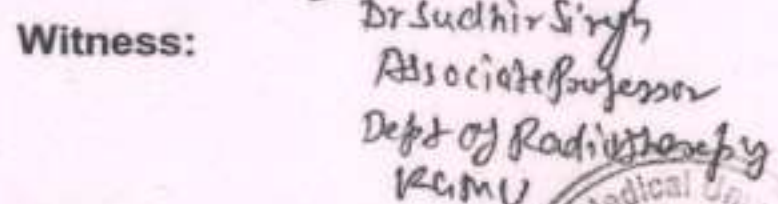 Witness:
Dr Sudhir Singh
Associate Professor
Dept of Radiotherapy
KGMU
edical Un